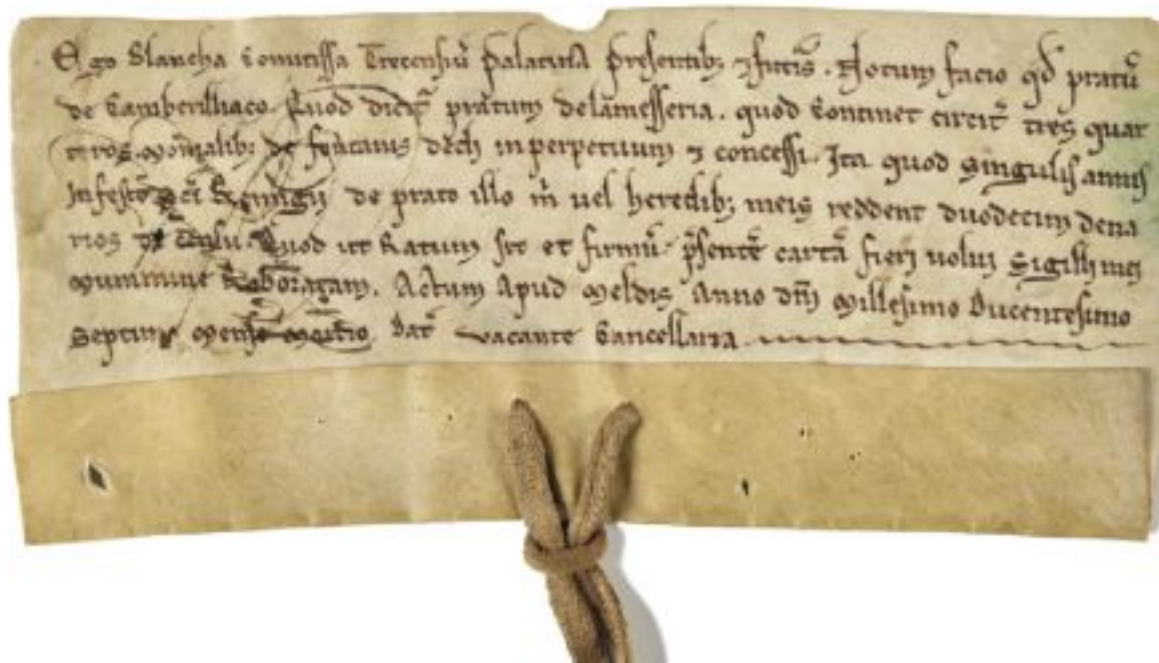 Ego Blancha Comitissa Trecensiũ Palatina Presentib; ⁊ futĩs. Notum facio qđ pratũ
de Camberilliaco Quod dicit̃ pratum delamesseria. quod Continet circit̃ tres quar
teros. Monialib; de fontanis dedi inperpetuum ⁊ concessi. Ita quod Singulis annis
In festo Sc̃i Remigij de prato illo m̃ uel heredib; meis reddent duodecim dena
rios de Censu. Quod ut Ratum sit et firmũ. p̃sentẽ cartã fieri uolui Sigilli mei
Munimine Roboratam. Actum Apud Meldis Anno dñi Millesimo Ducentesimo
Septimo Mense Dat̃ vacante Cancellaria